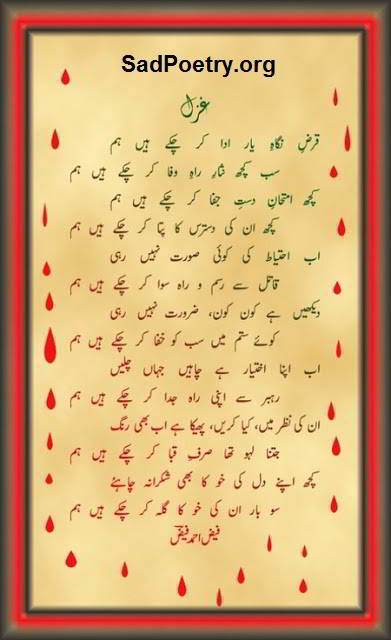 SadPoetry.org
غزل
قرضِ نگاہِ یار ادا کر چکے ہیں ہم
سب کچھ نثارِ راہِ وفا کر چکے ہیں ہم
کچھ امتحانِ دستِ جفا کر چکے ہیں ہم
کچھ ان کی دسترس کا پتا کر چکے ہیں ہم
اب احتیاط کی کوئی صورت نہیں رہی
قاتل سے رسم و راہ سوا کر چکے ہیں ہم
دیکھیں ہے کون کون، ضرورت نہیں رہی
کوئے ستم میں سب کو خفا کر چکے ہیں ہم
اب اپنا اختیار ہے چاہیں جہاں چلیں
رہبر سے اپنی راہ جدا کر چکے ہیں ہم
ان کی نظر میں، کیا کریں، پھیکا ہے اب بھی رنگ
جتنا لہو تھا صرفِ قبا کر چکے ہیں ہم
کچھ اپنے دل کی خو کا بھی شکرانہ چاہئے
سو بار ان کی خو کا گلہ کر چکے ہیں ہم
فیض احمد فیضؔ